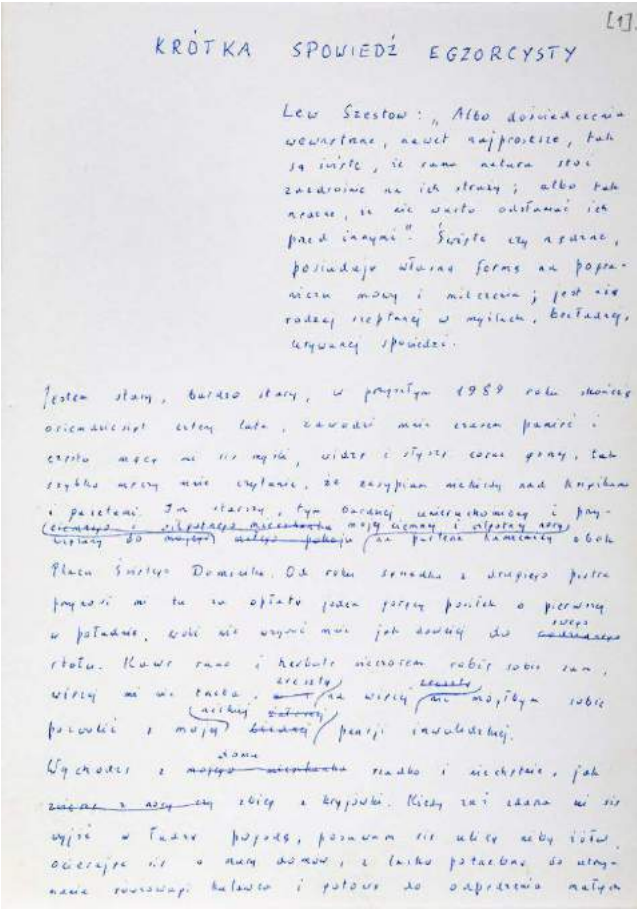 [1].
KRÓTKA SPOWIEDŹ EGZORCYSTY
Lew Szestow: „Albo doświadczenia
wewnętrzne, nawet najprostsze, tak
są święte, że sama natura stoi
zazdrośnie na ich straży; albo tak
nędzne, że nie warto odsłaniać ich
przed innymi". Święte czy nędzne,
posiadają własną formę na pogra-
niczu mowy i milczenia; jest nią
rodzaj szeptanej w myślach, bezładnej,
urywanej spowiedzi.
Jestem stary, bardzo stary, w przyszłym 1989 roku skończę
osiemdziesiąt cztery lata, zawodzi mnie czasem pamięć i
często mącą mi się myśli, widzę i słyszę coraz gorzej, tak
szybko męczy mnie czytanie, że zasypiam niekiedy nad książkami
i gazetami. Im starszy, tym bardziej unieruchomiony i przy-
ciemnego i wilgotnego mieszkania moją ciemną i wilgotną norą
wiązany do mojego małego pokoju na parterze kamienicy obok
Placu Świętego Dominika. Od roku sąsiadka z drugiego piętra
przynosi mi tu za opłatą jeden gorący posiłek o pierwszej
swego
w południe, woli nie wzywać mnie jak dawniej do
stołu. Kawę rano i herbatę wieczorem robię sobie sam,
zresztą zresztą
więcej mi nie trzeba, na więcej nie mógłbym sobie
niskiej
pozwolić z mojej biednej pensji inwalidzkiej.
domu
Wychodzę z mojego mieszkania rzadko i niechętnie, jak
zwierzę z nory czy zbieg z kryjówki. Kiedy zaś zdarza mi się
wyjść w ładną pogodę, posuwam się ulicą niby żółw,
ocierając się o mury domów, z laską potrzebną do utrzy-
mania równowagi kulawca i gotową do odpędzenia małych